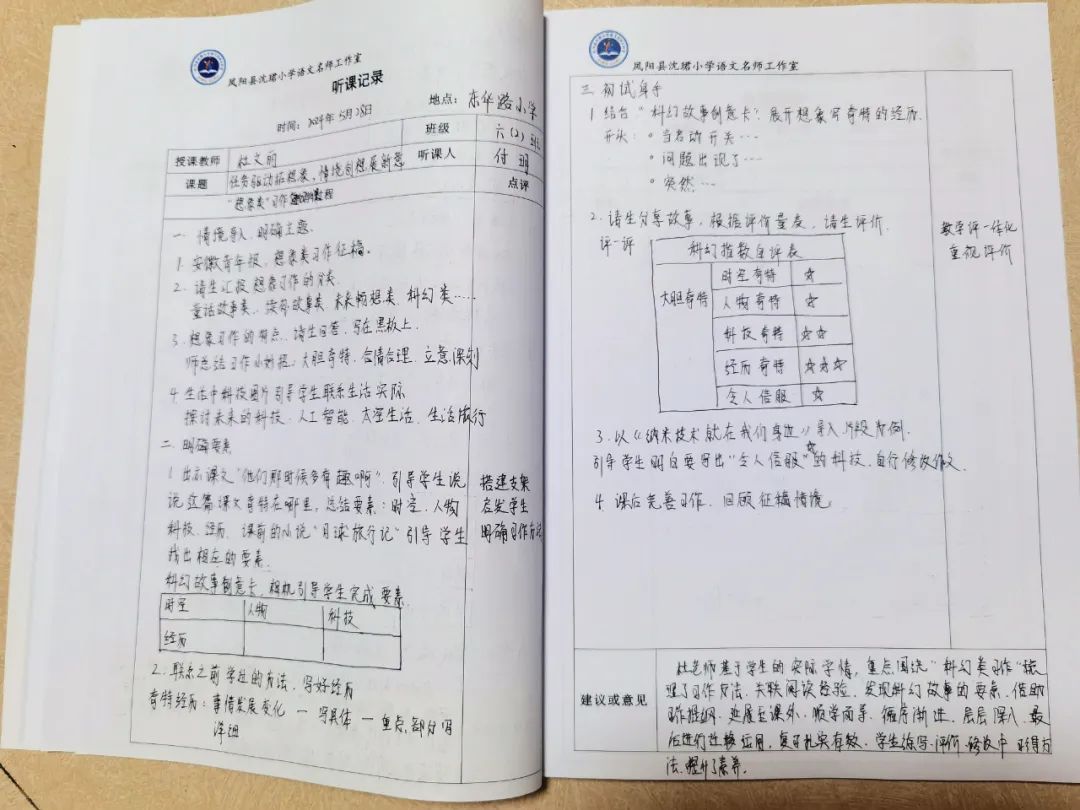 凤阳县沈珺小学语文名师工作室
听课记录
时间：2024年 5月28日
地点：东华路小学
授课教师 杜文丽 班级 六（2）班
课题 任务驱动拓想象，情境创想展新意 听课人 付
"想象类"习作 过程 点评
一、情境导入，明确主题.
1. 安徽青年报，想象类习作征稿。
2. 请生汇报 想象习作的分类.
童话故事类、 故事类 未来畅想类、科幻类……
3. 想象习作的特点，请生回答，写在黑板上.
师总结习作小妙招：大胆奇特、合情合理、立意深刻
4. 生活中科技图片引导学生联系生活实际
探讨未来的科技、人工智能、太空生活、生活旅行
二、明确要素
1. 出示课文"他们那时候多有趣啊"引导学生说
说这篇课文奇特在哪里，总结要素：时空、人物
科技、经历. 课前的小说"月球旅行记"引导学生
找出相应的要素.
搭建支架
启发学生
明确习作方法
科幻故事创意卡，相机引导学生完成要素.
时空 人物 科技
经历
2. 联系之前学过的方法，写好经历
奇特经历：事情发展变化 — 写具体 — 重点部分写
详细
凤阳县沈珺小学语文名师工作室
三 初试身手
1. 结合"科幻故事创意卡"展开想象写奇特的经历.
开头：。当启动开关……
。问题出现了……
。突然……
2. 请生分享故事，根据评价量表，请生评价.
评一评
科幻指数自评表
大胆奇特 时空奇特 ☆
人物奇特 ☆
科技奇特 ☆☆
经历奇特 ☆☆☆
令人信服 ☆
教学评一体化
重视评价
3. 以《纳米技术就在我们身边》导入片段为例.
引导学生明白要写出"令人信服"的科技，自行修改作文.
4. 课后完善习作，回顾征稿情境。
建议或意见
杜老师基于学生的实际学情，重点围绕"科幻类习作"梳
理了习作方法，关联阅读经验，发现科幻故事的要素，借助
习作提纲，延展至课外，顺学而导，循序渐进，层层深入，最
后进行迁移运用，复习扎实有效，学生练写、评价、修改中习得方
法，提升了素养。